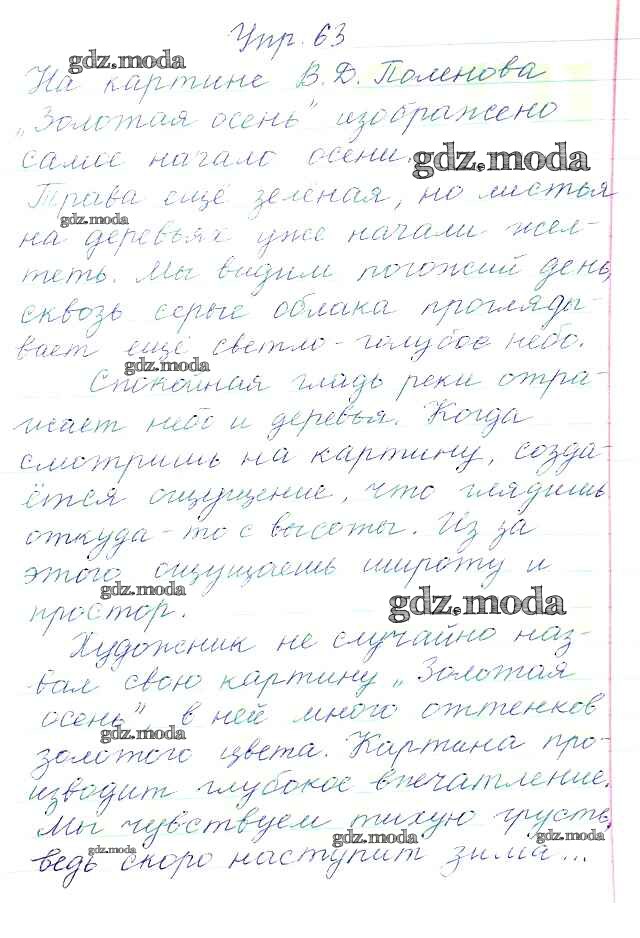 Упр. 63
gdz.moda
На картине В. Д. Поленова
„Золотая осень" изображено
самое начало осени.
gdz.moda
Трава ещё зелёная, но листья
gdz.moda
на деревьях уже начали жел-
теть. Мы видим погожий день,
сквозь серые облака прогляды-
вает ещё светло-голубое небо.
gdz.moda
Спокойная гладь реки отра-
жает небо и деревья. Когда
смотришь на картину, созда-
ётся ощущение, что глядишь
откуда-то с высоты. Из за
этого ощущаешь широту и
gdz.moda
простор.
gdz.moda
Художник не случайно наз-
вал свою картину „Золотая
осень", в ней много оттенков
gdz.moda
золотого цвета. Картина про-
изводит глубокое впечатление.
Мы чувствуем тихую грусть,
gdz.moda
gdz.moda
gdz.moda
ведь скоро наступит зима...